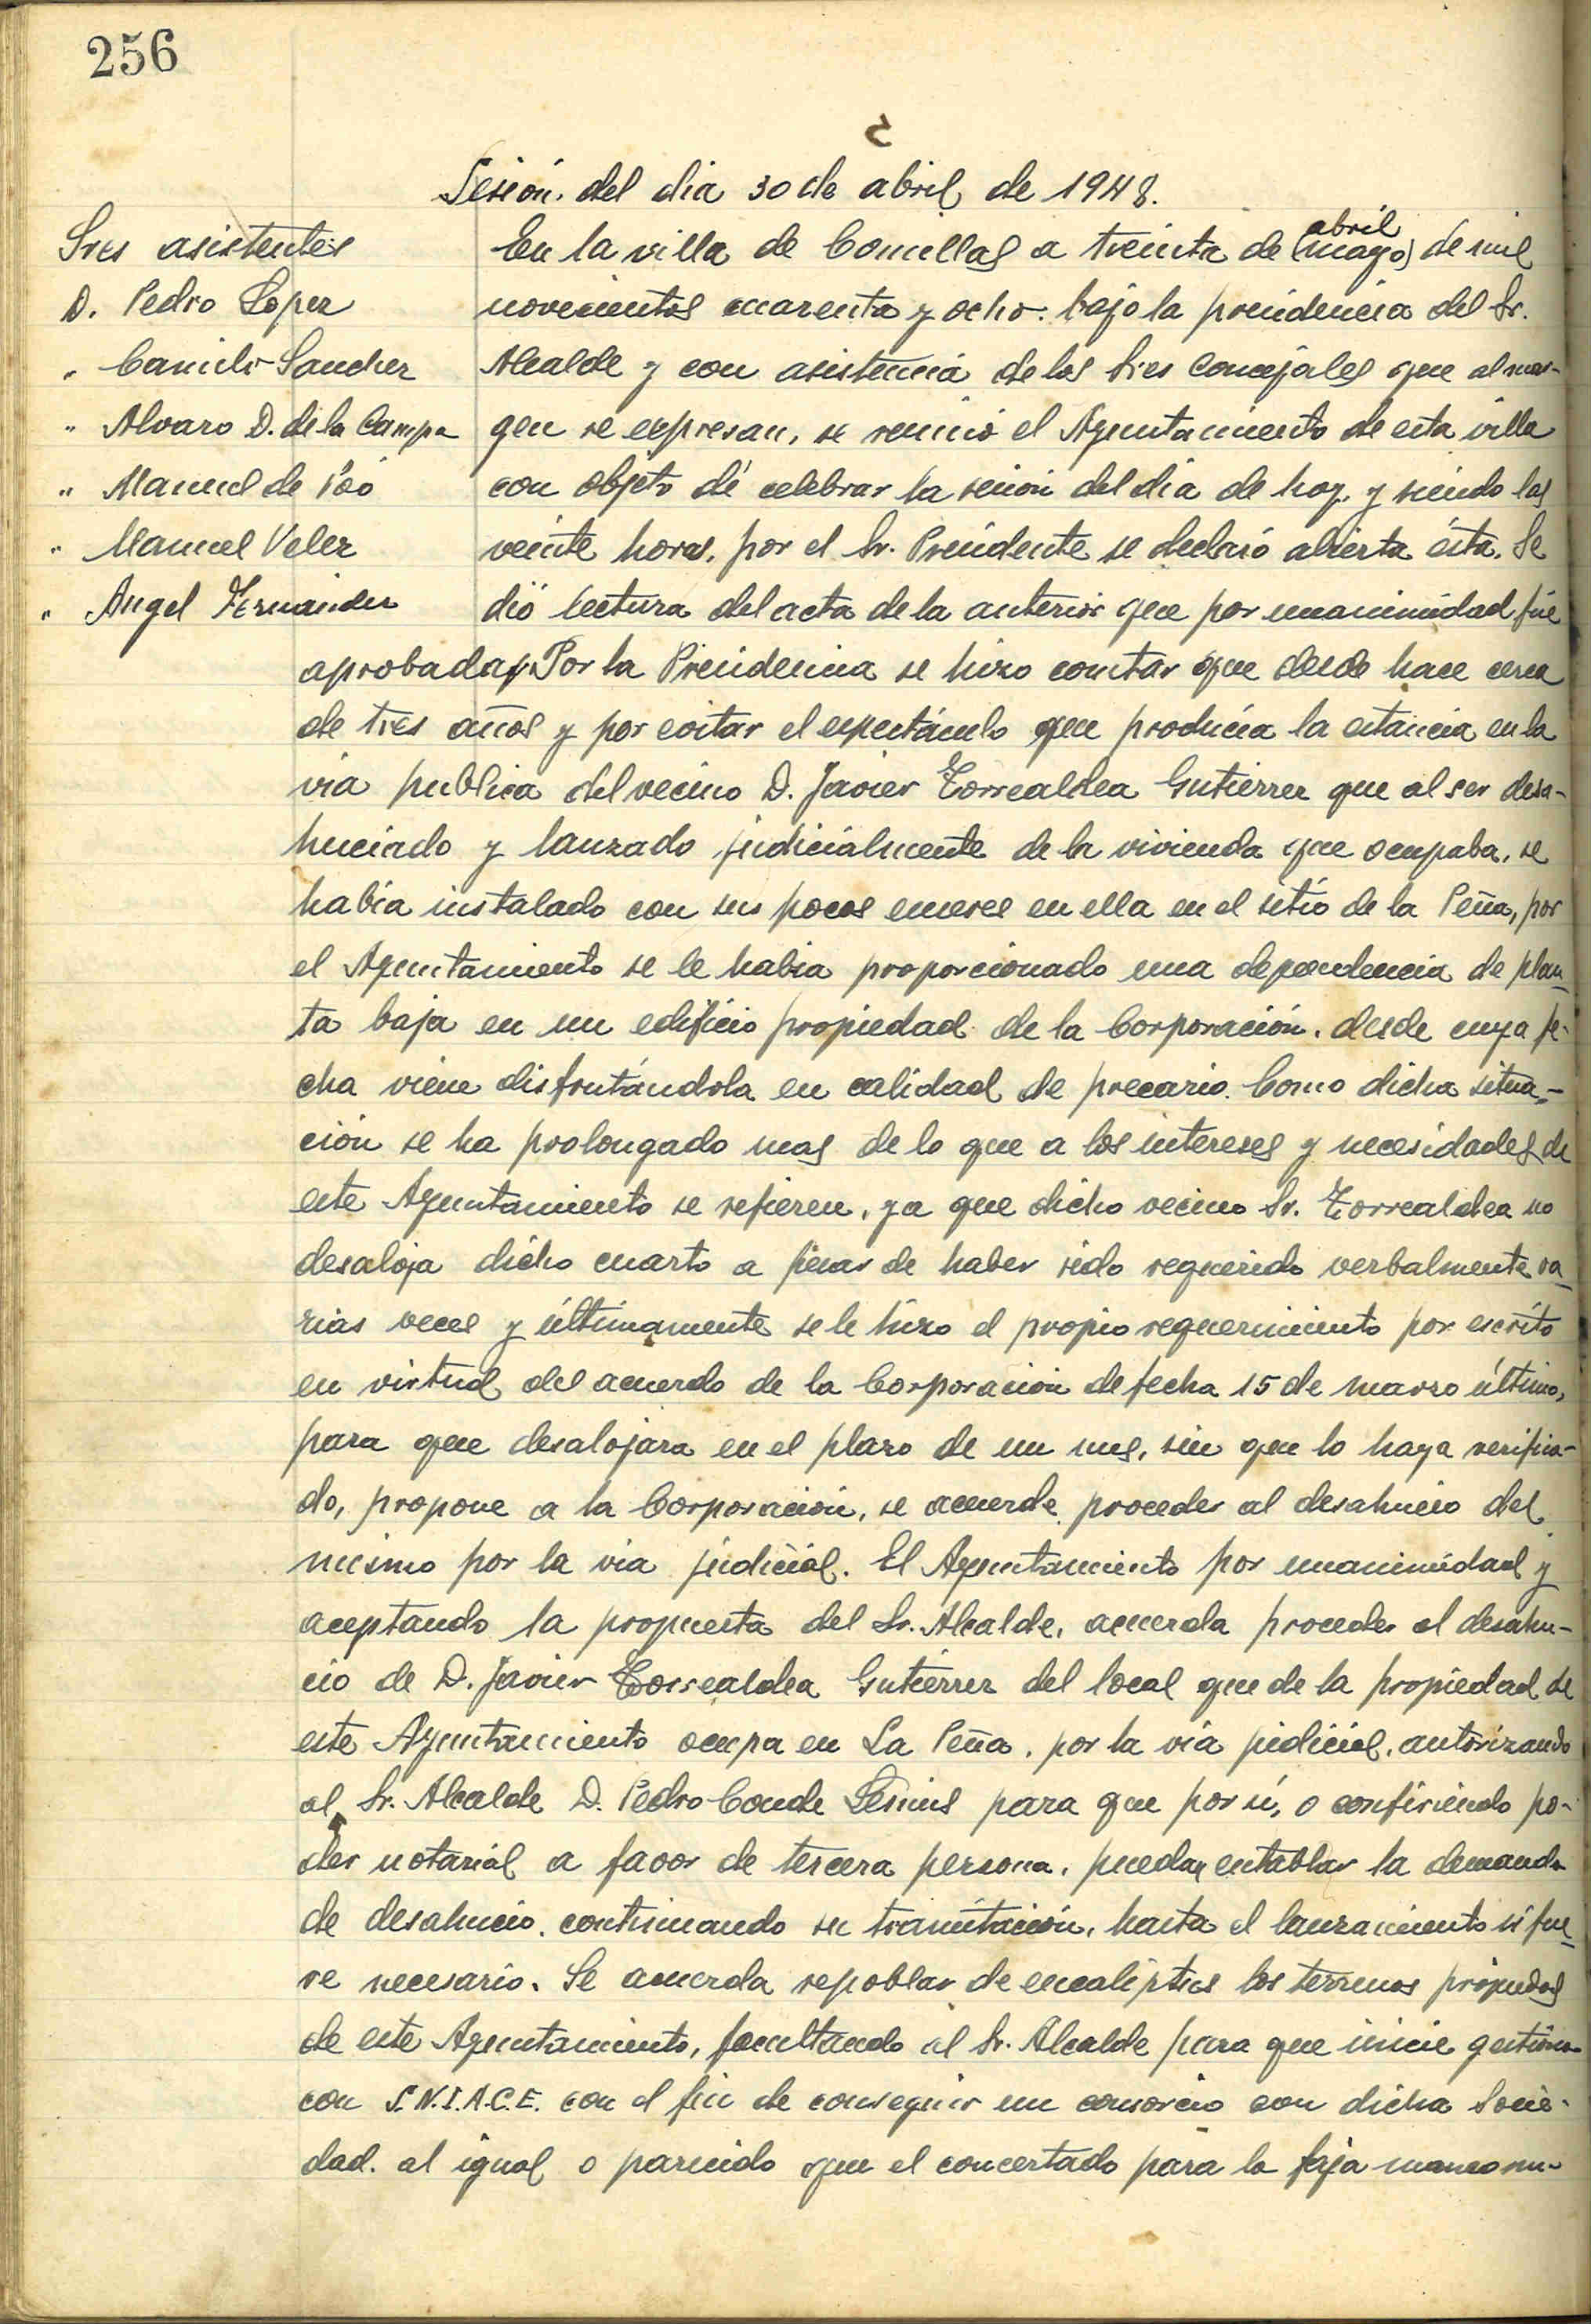 256
Sesión del dia 30 de abril de 1948.
Sres asistentes
D. Pedro Lopez
" Camilo Sanchez
" Alvaro D. de la Campa
" Manuel de Póo
" Manuel Velez
" Angel Fernández
abril
En la villa de Comillas a treinta de (mayo) de mil
novecientos cuarenta y ocho. bajo la presidencia del Sr.
Alcalde y con asistencia de los Sres Concejales que al mar-
gen se expresan, se reunió el Ayuntamiento de esta villa
con objeto de celebrar la sesión del dia de hoy, y siendo las
veinte horas, por el Sr. Presidente se declaró abierta ésta. Se
dió lectura del acta de la anterior que por unanimidad fué
aprobada. Por la Presidencia se hizo constar que desde hace cerca
de tres años y por evitar el espectáculo que producía la estancia en la
via publica del vecino D. Javier Torrealdea Gutierrez que al ser desa-
huciado y lanzado judicialmente de la vivienda que ocupaba, se
había instalado con sus pocos enseres en ella en el sitio de la Peña, por
el Ayuntamiento se le habia proporcionado una dependencia de plan
ta baja en un edificio propiedad de la Corporación, desde cuya fe-
cha viene disfrutándola en calidad de precario. Como dicha situa-
ción se ha prolongado mas de lo que a los intereses y necesidades de
este Ayuntamiento se refieren, ya que dicho vecino Sr. Torrealdea no
desaloja dicho cuarto a pesar de haber sido requerido verbalmente va
rias veces y últimamente se le hizo el propio requerimiento por escrito
en virtud del acuerdo de la Corporación de fecha 15 de marzo último,
para que desalojara en el plazo de un mes, sin que lo haya verifica-
do, propone a la Corporación, se acuerde proceder al desahucio del
mismo por la via judicial. El Ayuntamiento por unanimidad y
aceptando la propuesta del Sr. Alcalde, acuerda proceder al desahu-
cio de D. Javier Torrealdea Gutiérrez del local que de la propiedad de
este Ayuntamiento ocupa en La Peña, por la vía judicial, autorizando
al Sr. Alcalde D. Pedro Conde para que por sí, o confiriendo po-
der notarial a favor de tercera persona, pueda entablar la demanda
de desahucio, continuando su tramitación, hasta el lanzamiento si fue
re necesario. Se acuerda repoblar de eucaliptus los terrenos propiedad
de este Ayuntamiento, facultando al Sr. Alcalde para que inicie gestiones
con S.N.I.A.C.E. con el fin de conseguir un consorcio con dicha Socie-
dad. al igual o parecido que el concertado para la faja mancomu-